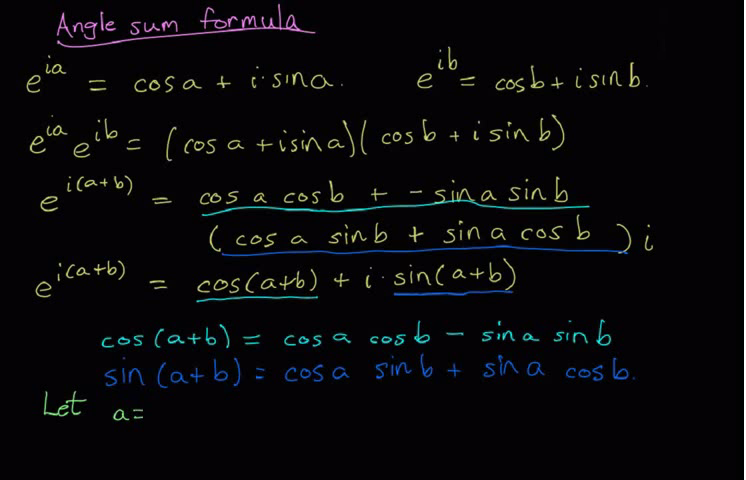 Angle sum formula
e^{ia} = cos a + i·sin a. e^{ib} = cos b + i sin b.
e^{ia} e^{ib} = (cos a + i sin a)(cos b + i sin b)
e^{i(a+b)} = cos a cos b + - sin a sin b
(cos a sin b + sin a cos b) i
e^{i(a+b)} = cos(a+b) + i · sin(a+b)
cos(a+b) = cos a cos b - sin a sin b
sin(a+b) = cos a sin b + sin a cos b.
Let a=